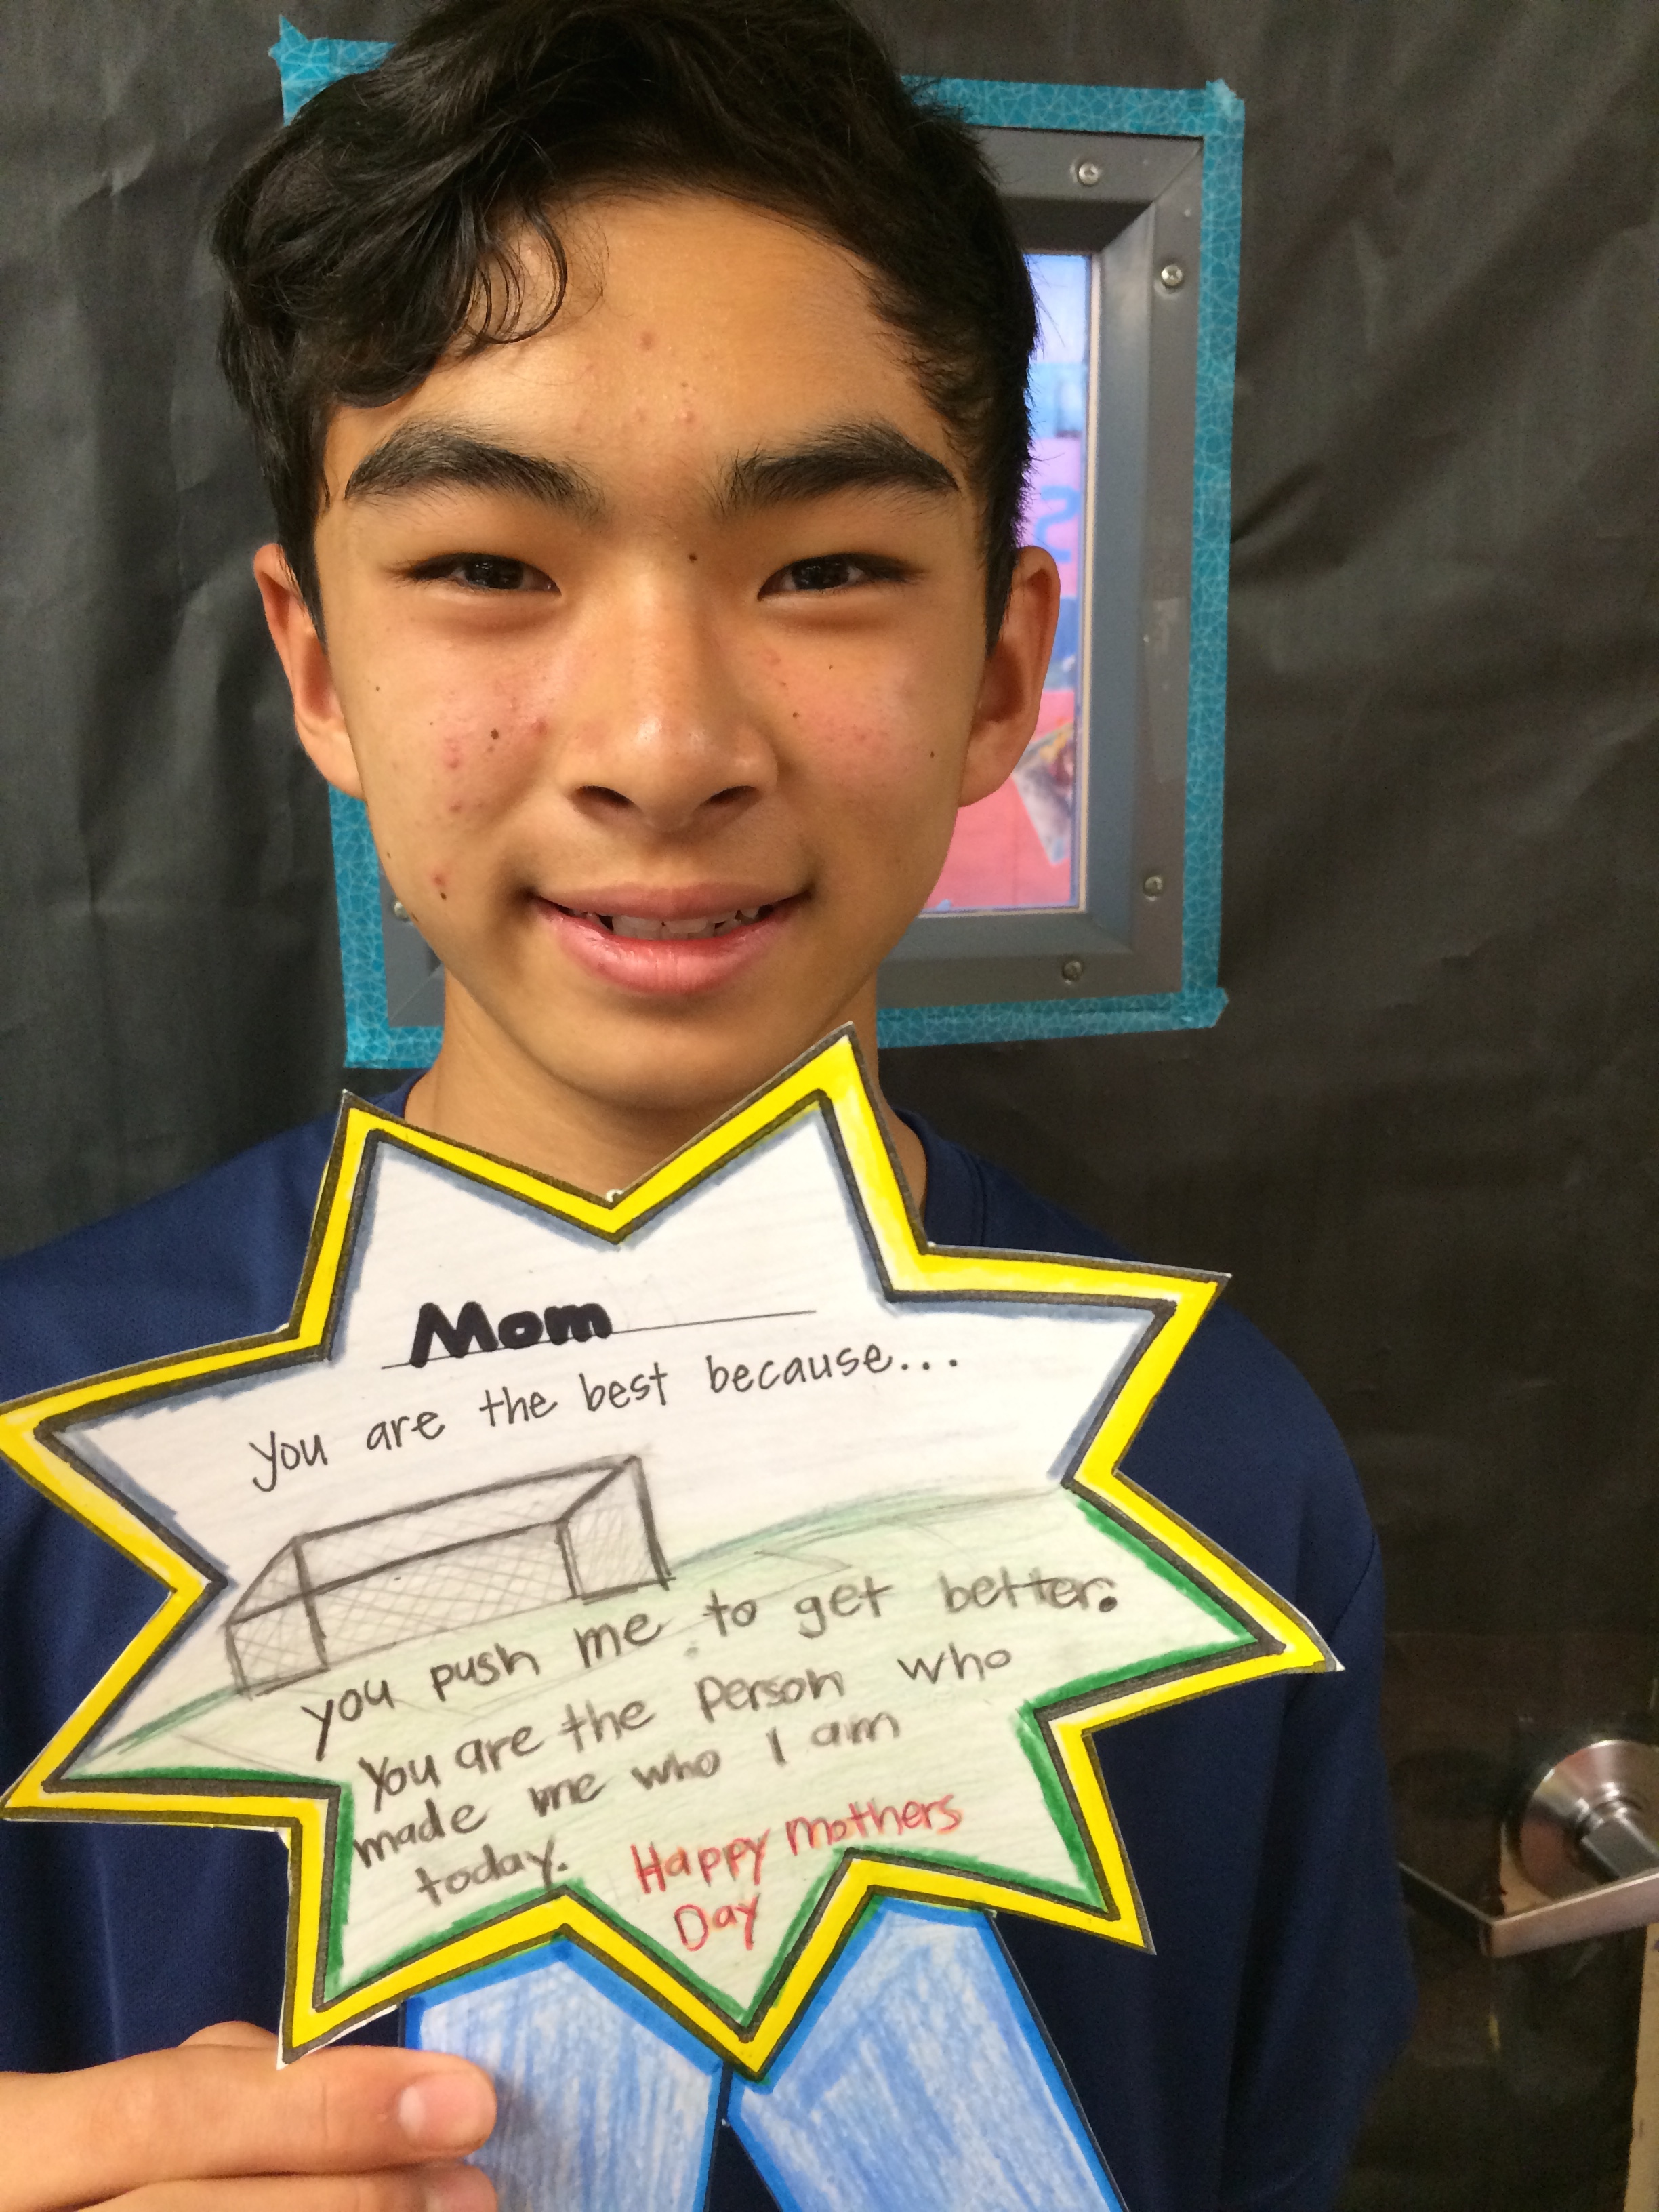 Mom
You are the best because...
you push me to get better.
You are the person who
made me who I am
today.
Happy Mothers
Day